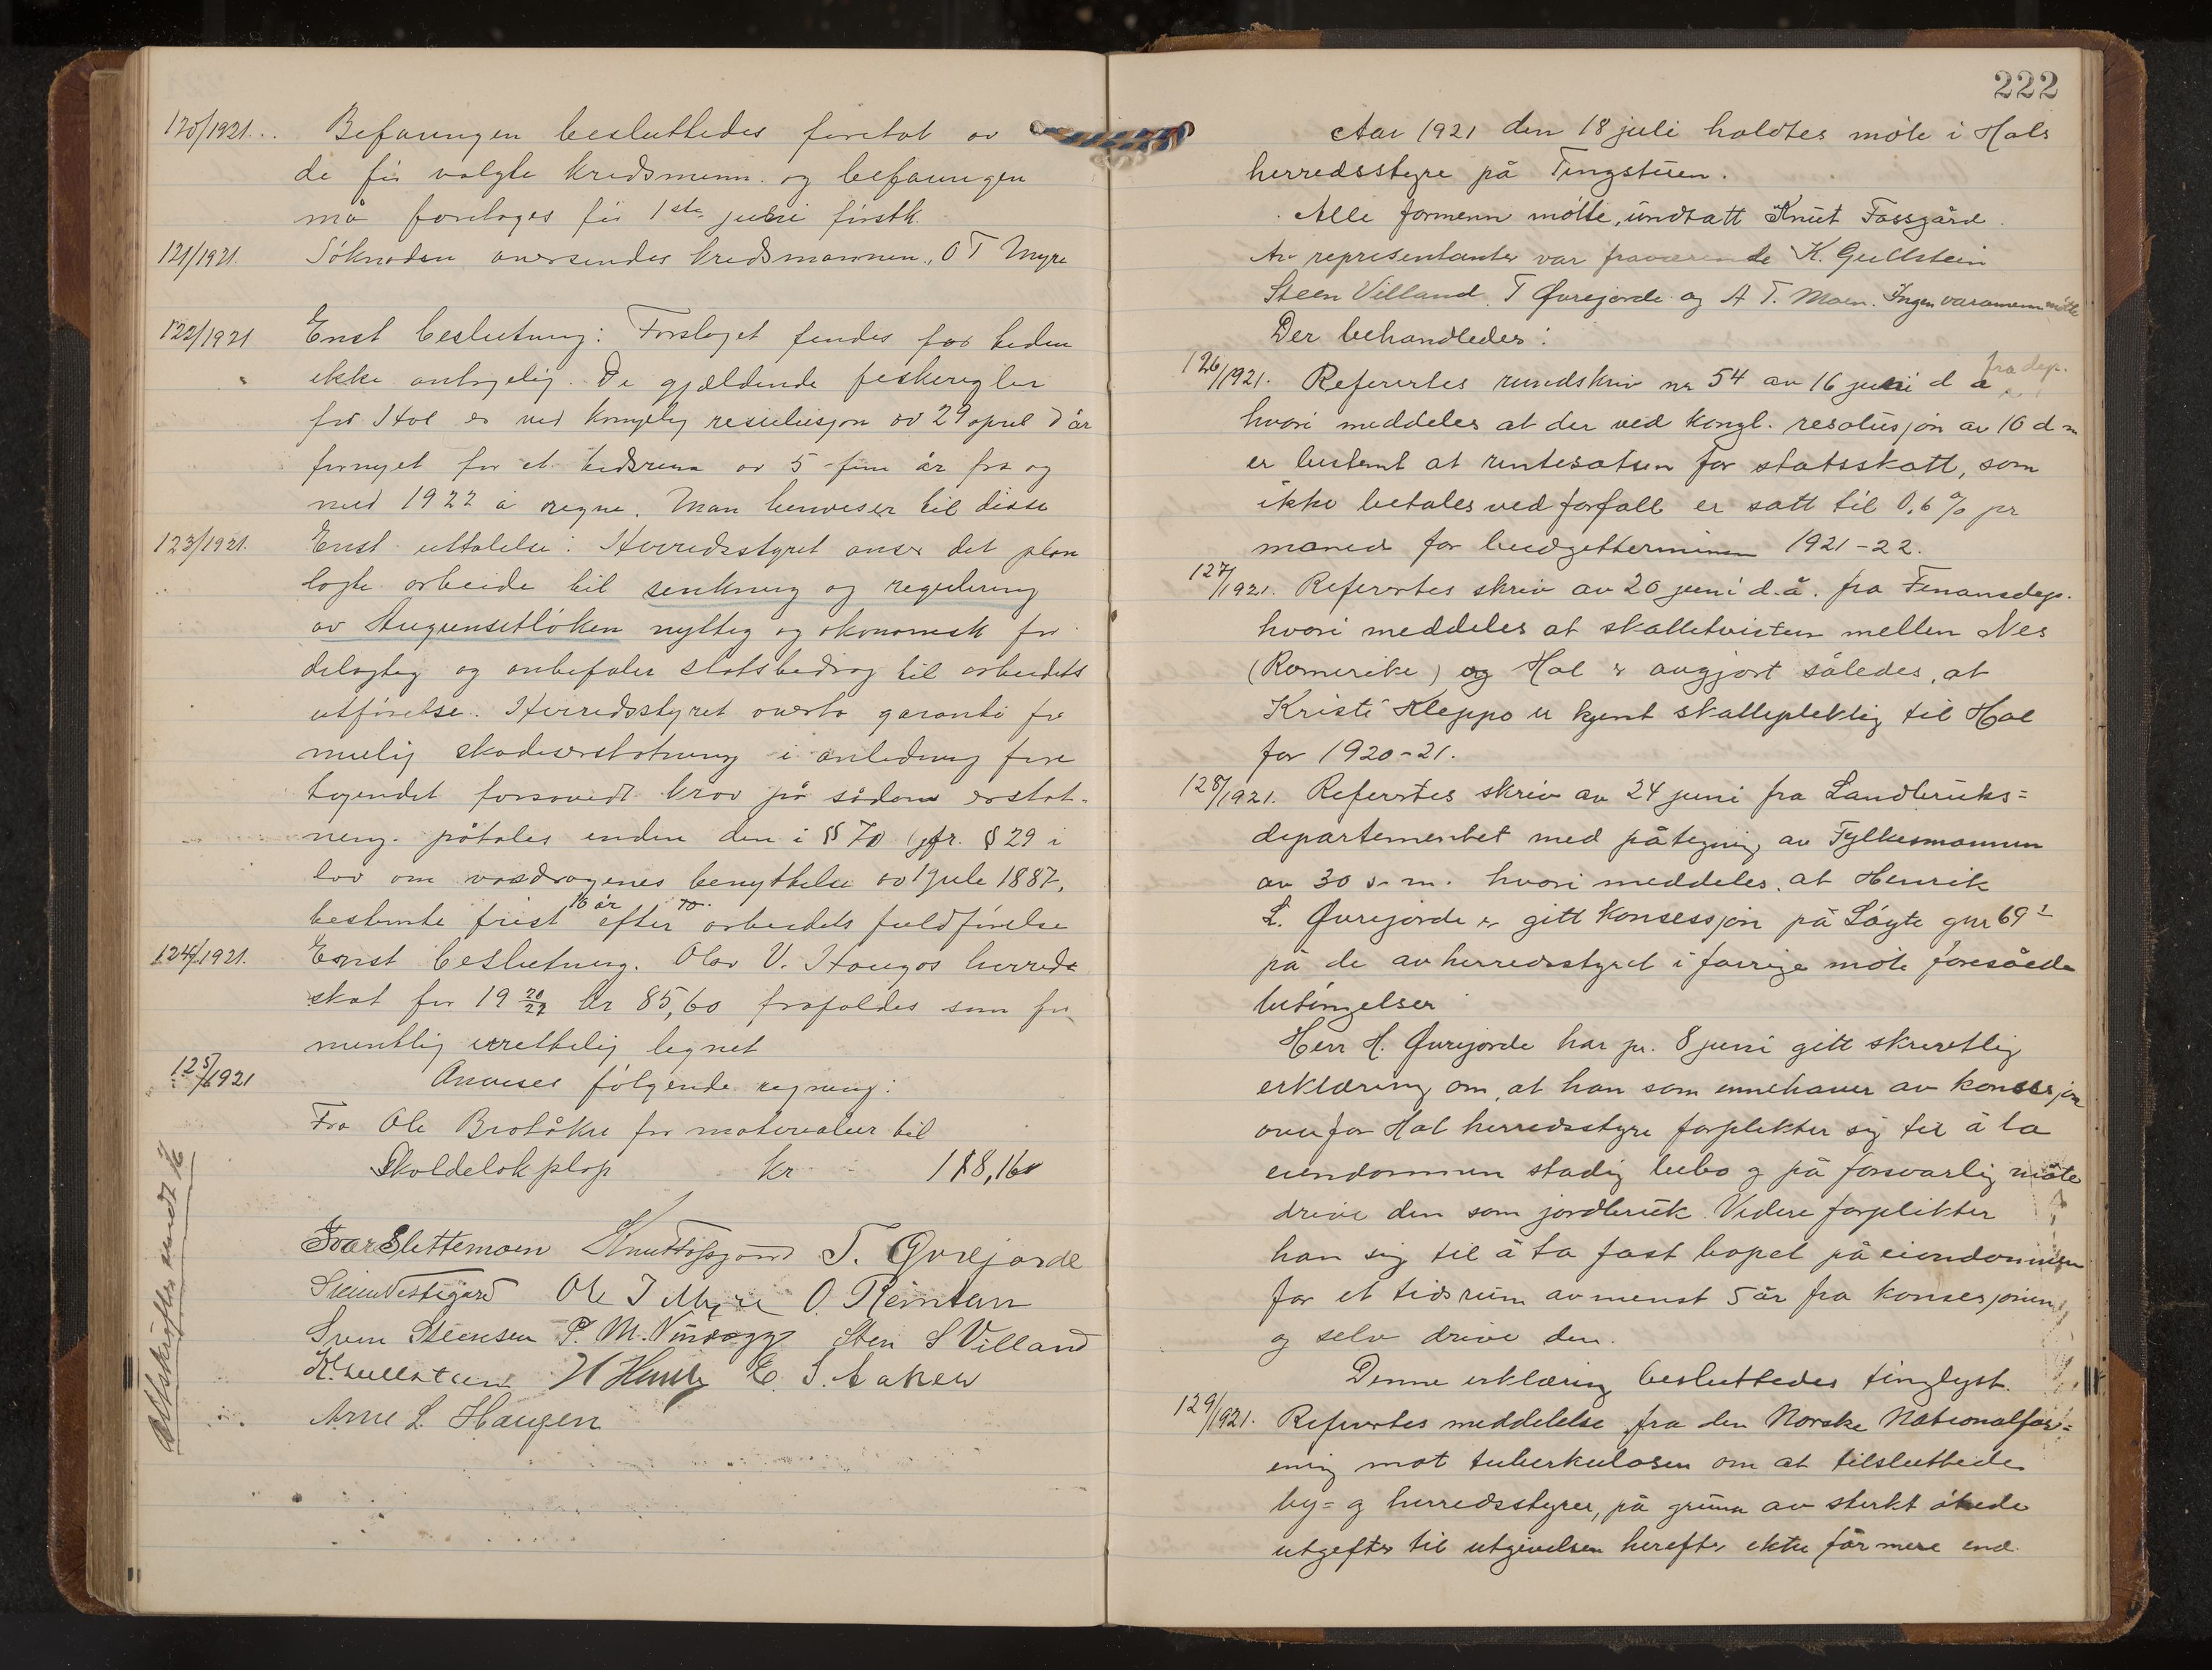 120/1921. Befaringen besluttedes foretat av
de før valgte kredsmenn og befaringen
må foretages før 1ste juli førstk.
121/1921. Søknaden oversendes kredsmannen, O T Myre
122/1921 Enst beslutning: Forslaget findes for tiden
ikke antagelig. De gjældende fiskeregler
for Hol er ved kongelig resulusjon av 29 april d år
fornyet for et tidsrum av 5 fem år fra og
med 1922 å regne. Man henviser til disse
123/1921. Enst uttalelse: Herredsstyret anser det plan
lagte arbeide til senkning og regulering
av Augunsetløken nyttig og økonomisk for
delagtig og anbefaler statsbidrag til arbeidets
utførelse. Herredsstyret overta garanti for
mulig skadeserstatning i anledning fore
tagendet forsovidt krav på sådan erstat-
ning påtales inden den i §§ 70 jfr. § 29 i
lov om vasdragenes benyttelse av 1 jule 1887,
bestemte frist 10 år efter arbeidets fuldførelse
124/1921. Enst beslutning. Olav V. Haugos herreds
skat for 19 20/21 kr 85,60 frafaldes som for
mentlig urettelig lignet
125/1921 Anvises følgende regning:
Fra Ole Brotåker for materialier til
Skoldelok plop kr 118,160
Ivar Slettemoen Knut Fossgård T. Øvrejorde
Svein Vestegård Ole T Myre O. Reinton
Sven Steensen P. M. Nindegge Sten S Villand
K. Gullstein E. S. Aaker
Arne L. Haugen
Utskrifter sendt
222
Aar 1921 den 18 juli holdtes møte i Hols
herredsstyre på Tingstuen.
Alle formenn møtte, undtatt Knut Fossgård.
Av representanter var fraværende K. Gullstein
Steen Villand, T Øvrejorde og A T. Moen. Ingen varamenn møtte
Der behandledes:
126/1921. Referertes rundskriv nr 54 av 16 juni d å fra dep.
hvori meddeles at der ved kongl. resolusjon av 10 d m
er bestemt at rentesatsen for statsskatt, som
ikke betales ved forfall er satt til 0,6 % pr
måned for budgetterminen 1921-22.
127/1921. Referertes skriv av 20 juni d.å. fra Finansdep.
hvori meddeles at skattetvisten mellen Nes
(Romerike) og Hol er avgjort således, at
Kristi Kleppo er kjent skattepliktig til Hol
for 1920-21.
128/1921. Referertes skriv av 24 juni fra Landbruks=
departementet med påtegning av Fylkesmannen
av 30 s. m. hvori meddeles, at Henrik
L. Øvrejorde er gitt konsessjon på Løyte gnr 69
på de av herredsstyret i forrige møte foresåede
betingelser
Herr H. Øvrejorde har pr. 8 juni gitt skriftlig
erklæring om, at han som innehaver av konsesjon
overfor Hol herredsstyre forplikter sig til å la
eiendommen stadig bebo og på forsvarlig måte
drive den som jordbruk. Videre forplikter
han sig til å ta fast bopel på eiendommen
for et tidsrum av minst 5 år fra konsesjonen,
og selv drive den.
Denne erklæring besluttedes tinglyst.
129/1921. Referertes meddelelse fra den Norske Nationalfor=
ening mot tuberkulosen om at tilsluttede
by= og herredsstyrer, på grunn av sterkt økede
utgifter til utgivelsen herefter ikke får mere end